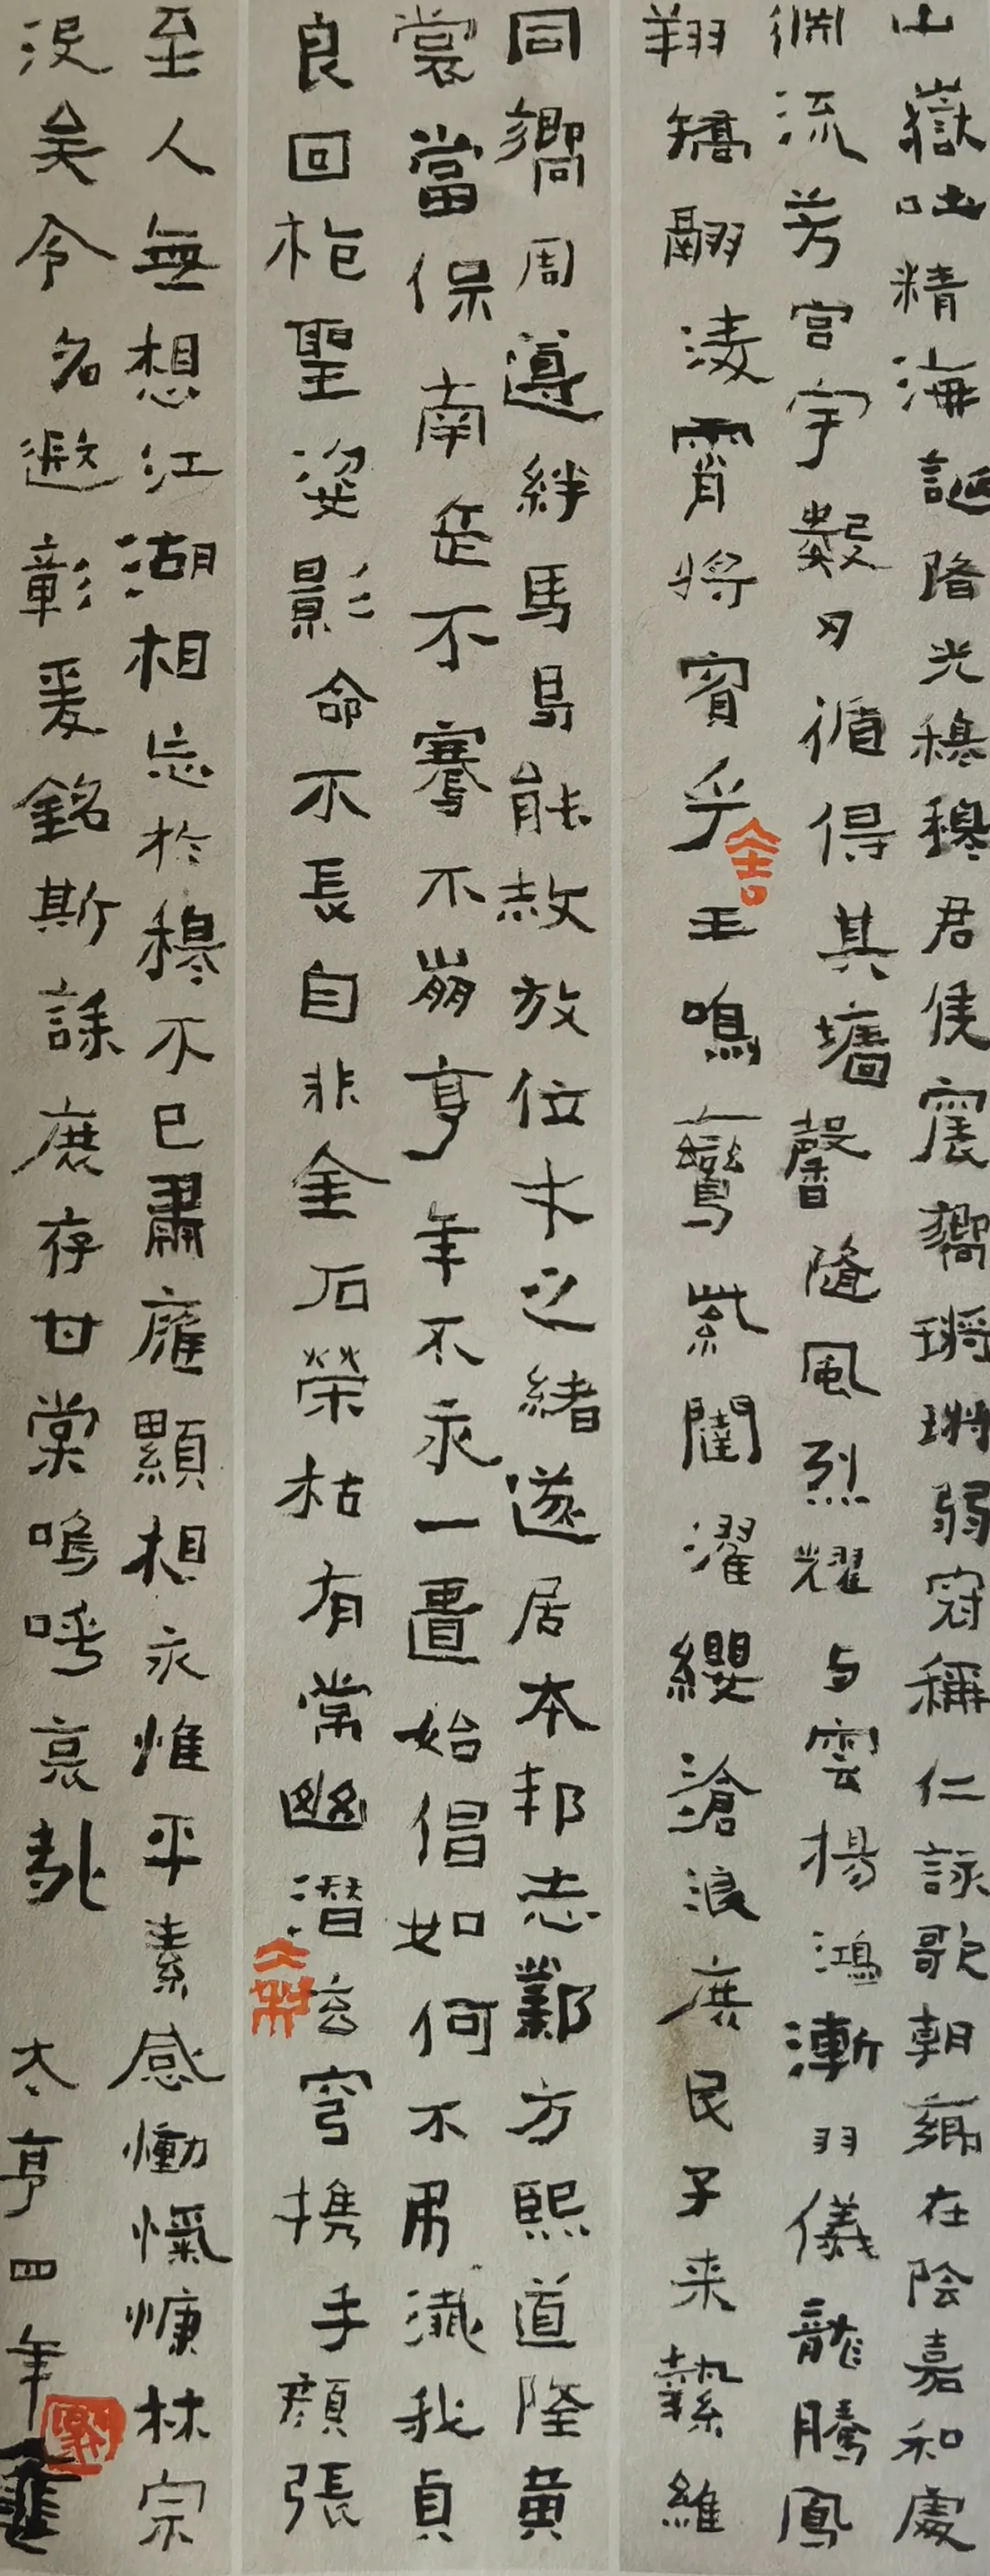 山嶽吐精海誕陼光穆穆君侯震嚮鏘鏘弱冠稱仁詠歌朝鄉在陰嘉和處
淵流芳宮宇數刃循得其墻馨隨風烈耀与雲揚鴻漸羽儀龍騰鳳
翔矯翮凌霄將賓乎王鳴鸞紫闥濯纓滄浪庶民子来縶維
同嚮周遵絆馬曷能赦放位才之緒遂居本邦志鄴方熙道隆黃
裳當保南岳不騫不崩享年不永一匱始倡如何不弔殲我貞
良回枹聖姿影命不長自非金石榮枯有常幽潛玄穹携手顏張
至人無想江湖相忘於穆不已肅雍顯相永惟平素感慟愾慷林宗
没矣令名遐彰爰銘斯誄庶存甘棠嗚呼哀哉 太亨四年